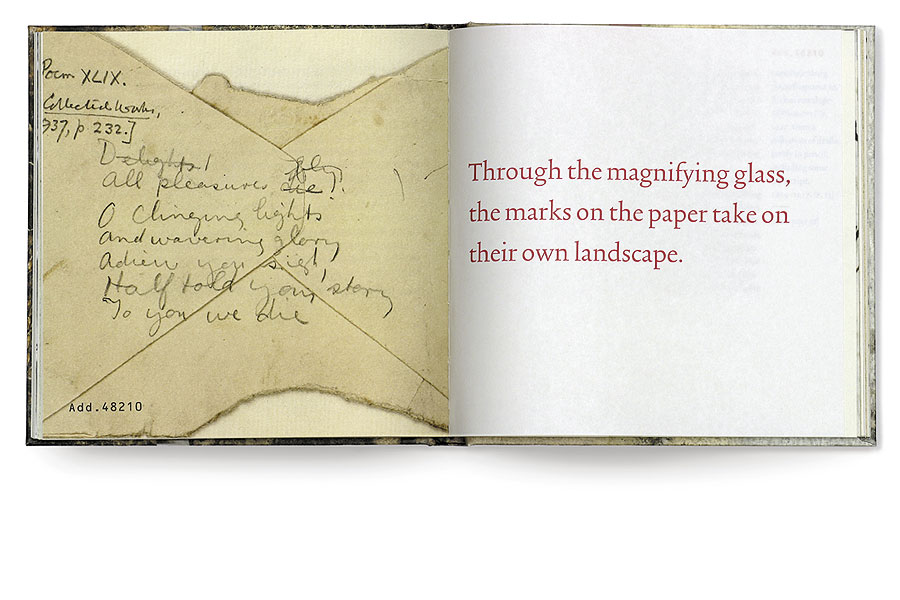 Poem XLIX.
Collected Works,
937, p 232.]
Delights!
All pleasures die!
O clinging lights
and wavering glory
Adieu you sigh,
Half told your story
To you we die
Add.48210
Through the magnifying glass,
the marks on the paper take on
their own landscape.